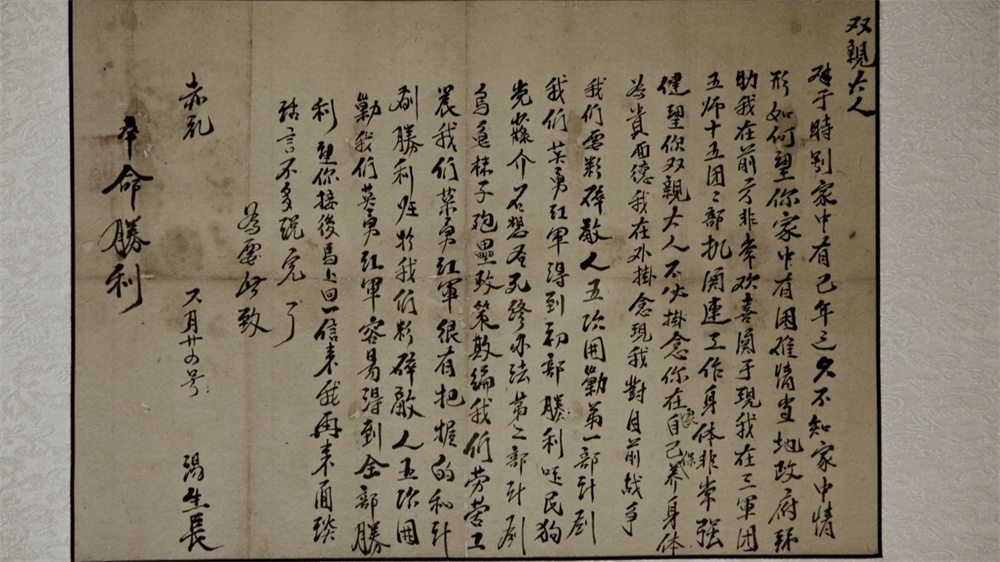 双親大人
時别家中有已年之久不知家中情
形如何望你家中有困难情当地政府
助我在前方非常欢喜関于現我在三軍团
五师十五团二部机関連工作身体非常强
健望你双親大人不必掛念你在家自己保养身体
為貴面德我在外掛念現我對目前战争
我们要粉碎敵人五次囲勦第一部计劃
我们英勇红軍得到初部勝利民狗
介石想死法第二部计劃
烏龟袜子砲壘政策欺編我们劳苦工
農我们英勇红軍很有把握的和计
劃勝利归於我们粉碎敵人五次囲
勦我们英勇红軍容易得到全部勝
利望你接後馬上回一信来我再来面談
話言不多説完了
為要此致
赤礼
革命勝利
六月廿四号 生長